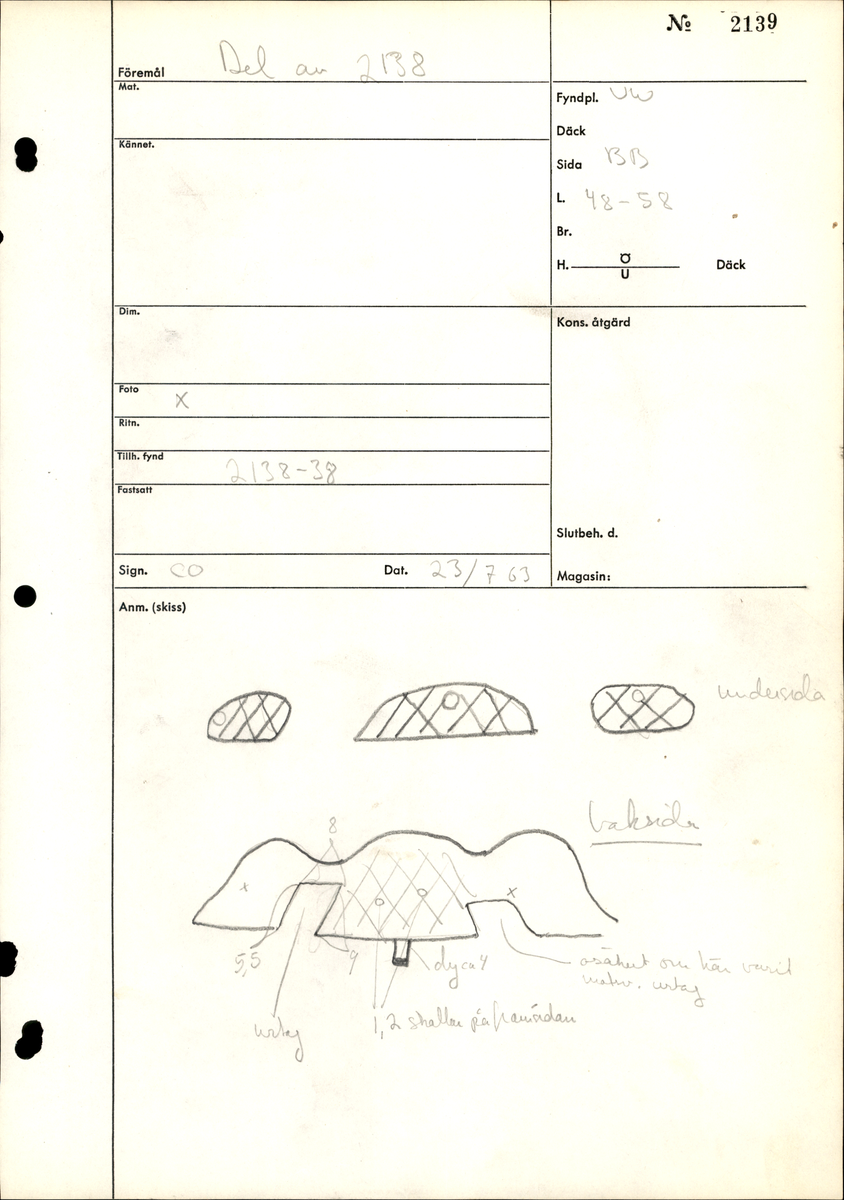 № 2139
Föremål Del av 2138
Mat.
Kännet.
Fyndpl. UW
Däck
Sida BB
L. 48-58
Br.
H. Ö Däck
U
Dim.
Kons. åtgärd
Foto X
Ritn.
Tillh. fynd 2138-38
Fastsatt
Slutbeh. d.
Sign. CO Dat. 23/7 63
Magasin:
Anm. (skiss)
undersida
baksida
8
x x
5,5 9 dyca 4
osäkert om här varit
motsv. urtag
urtag
1,2 skallar på framsidan